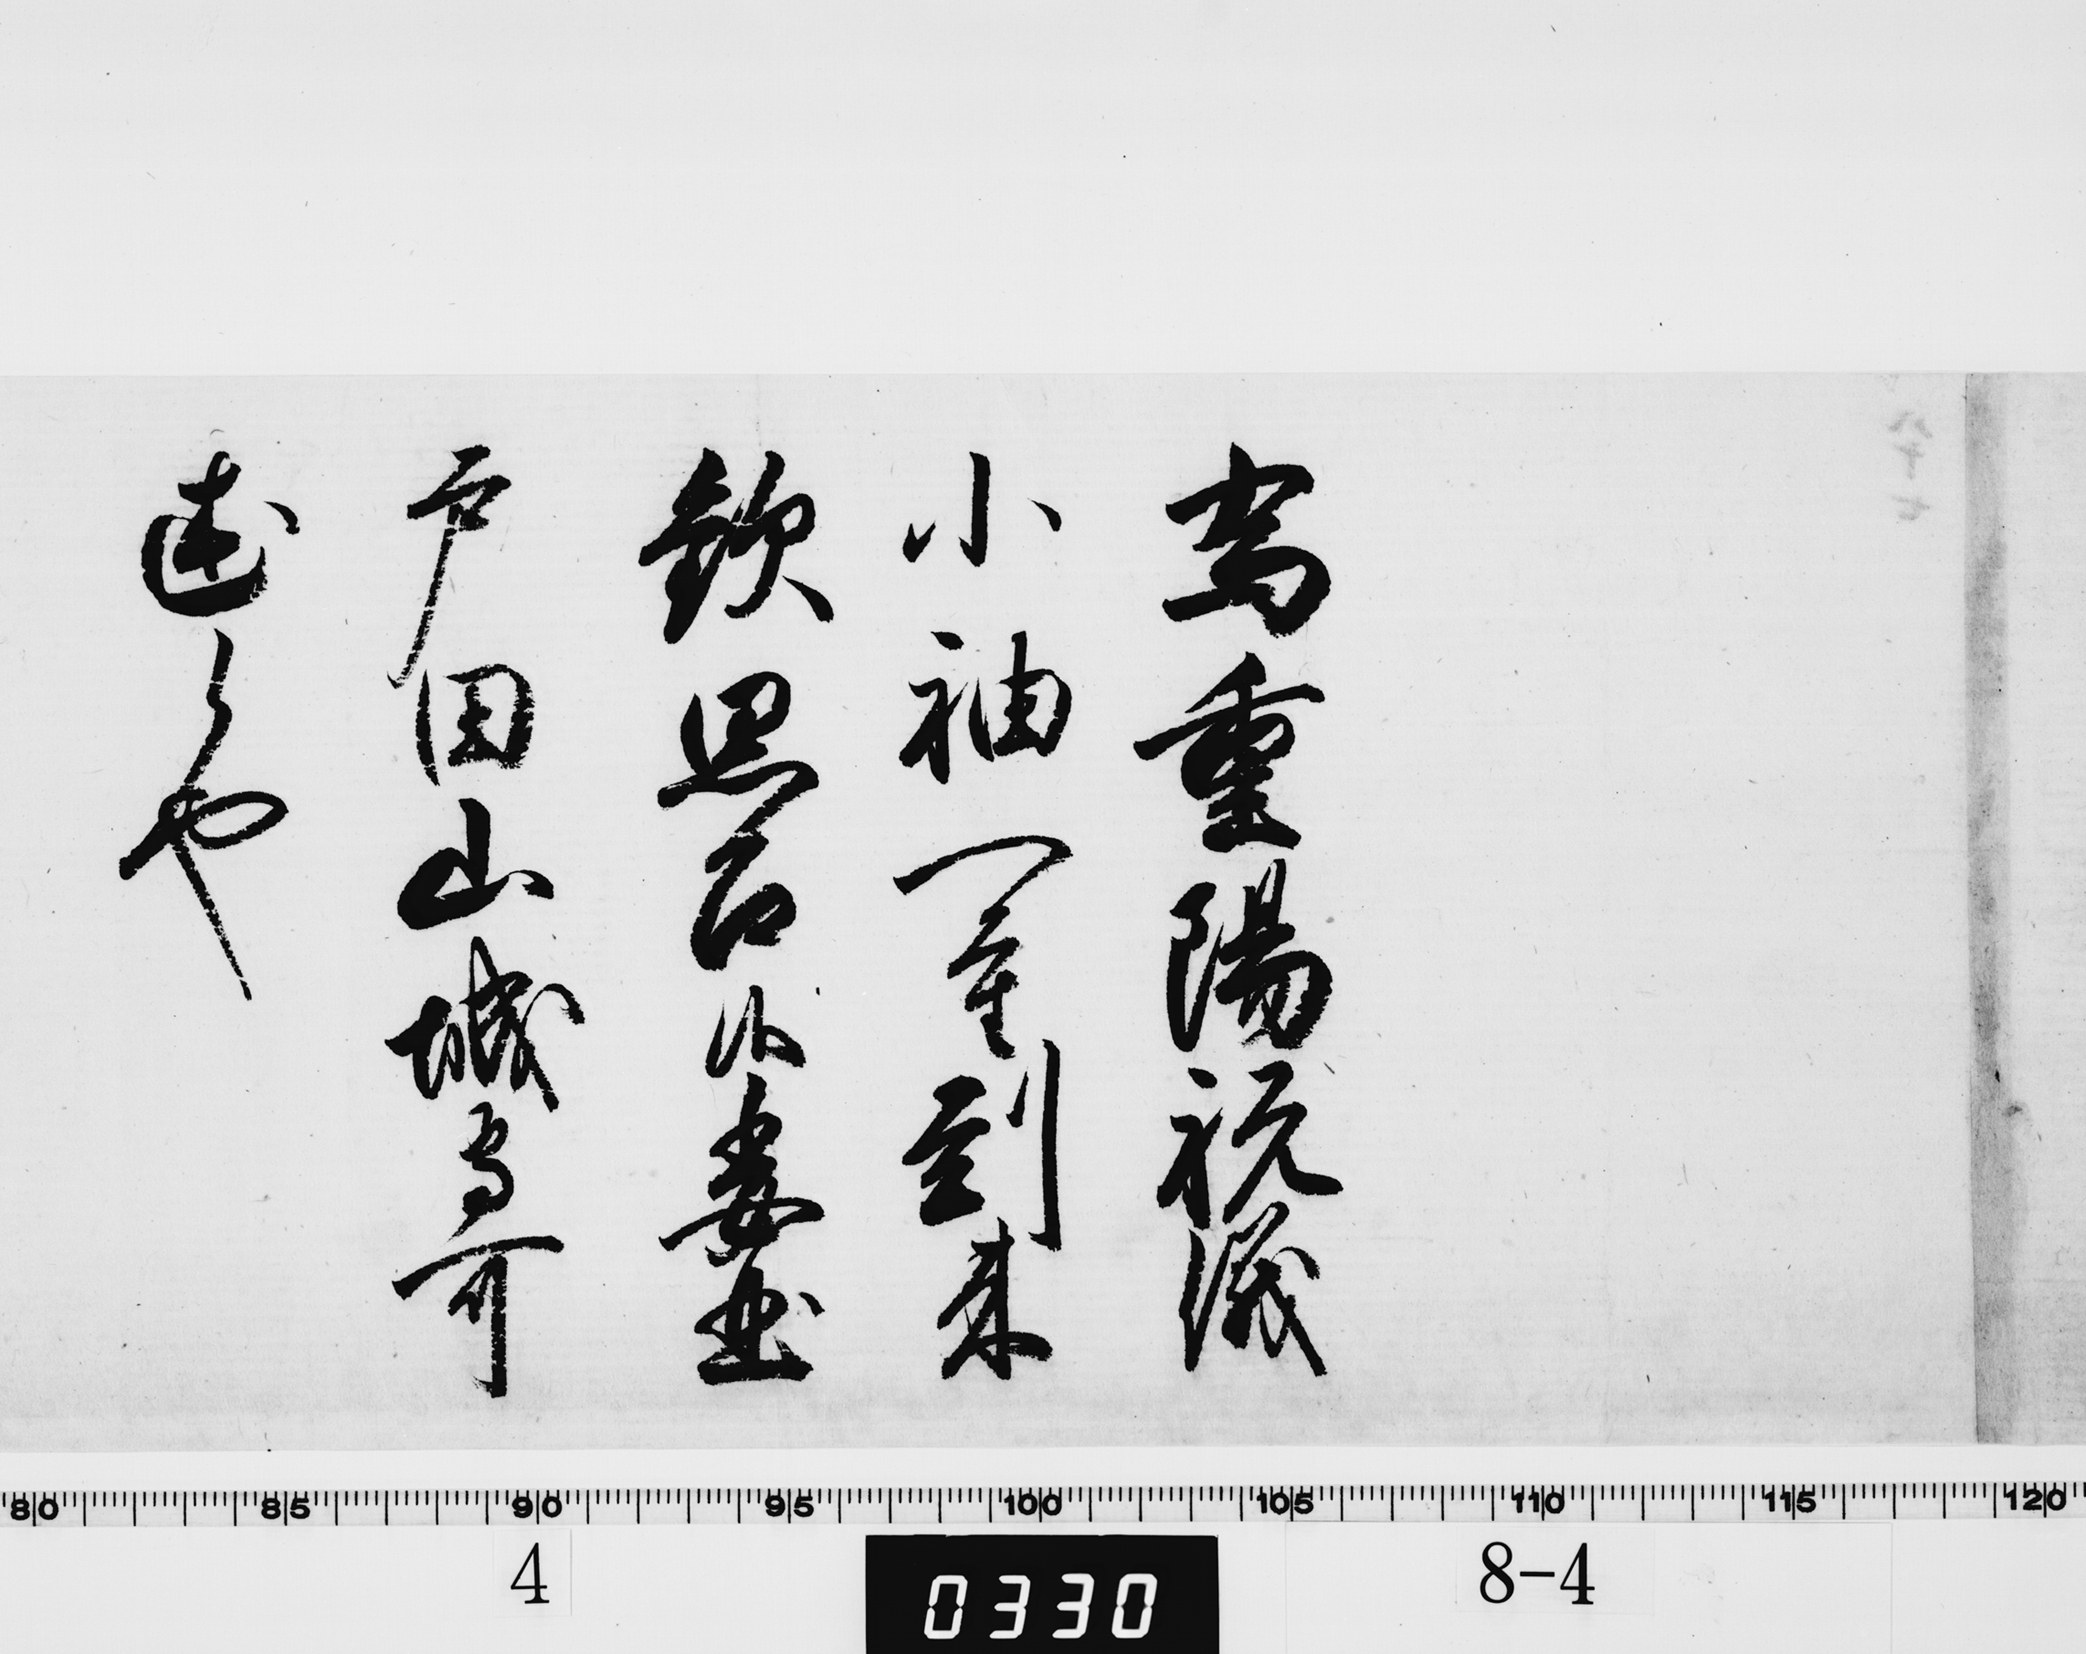 為重陽祝儀
小袖一重到来
歓思召候委曲
戸田山城守可
述候也
八十七
80 85 90 95 100 105 110 115 120
4 0330 8-4